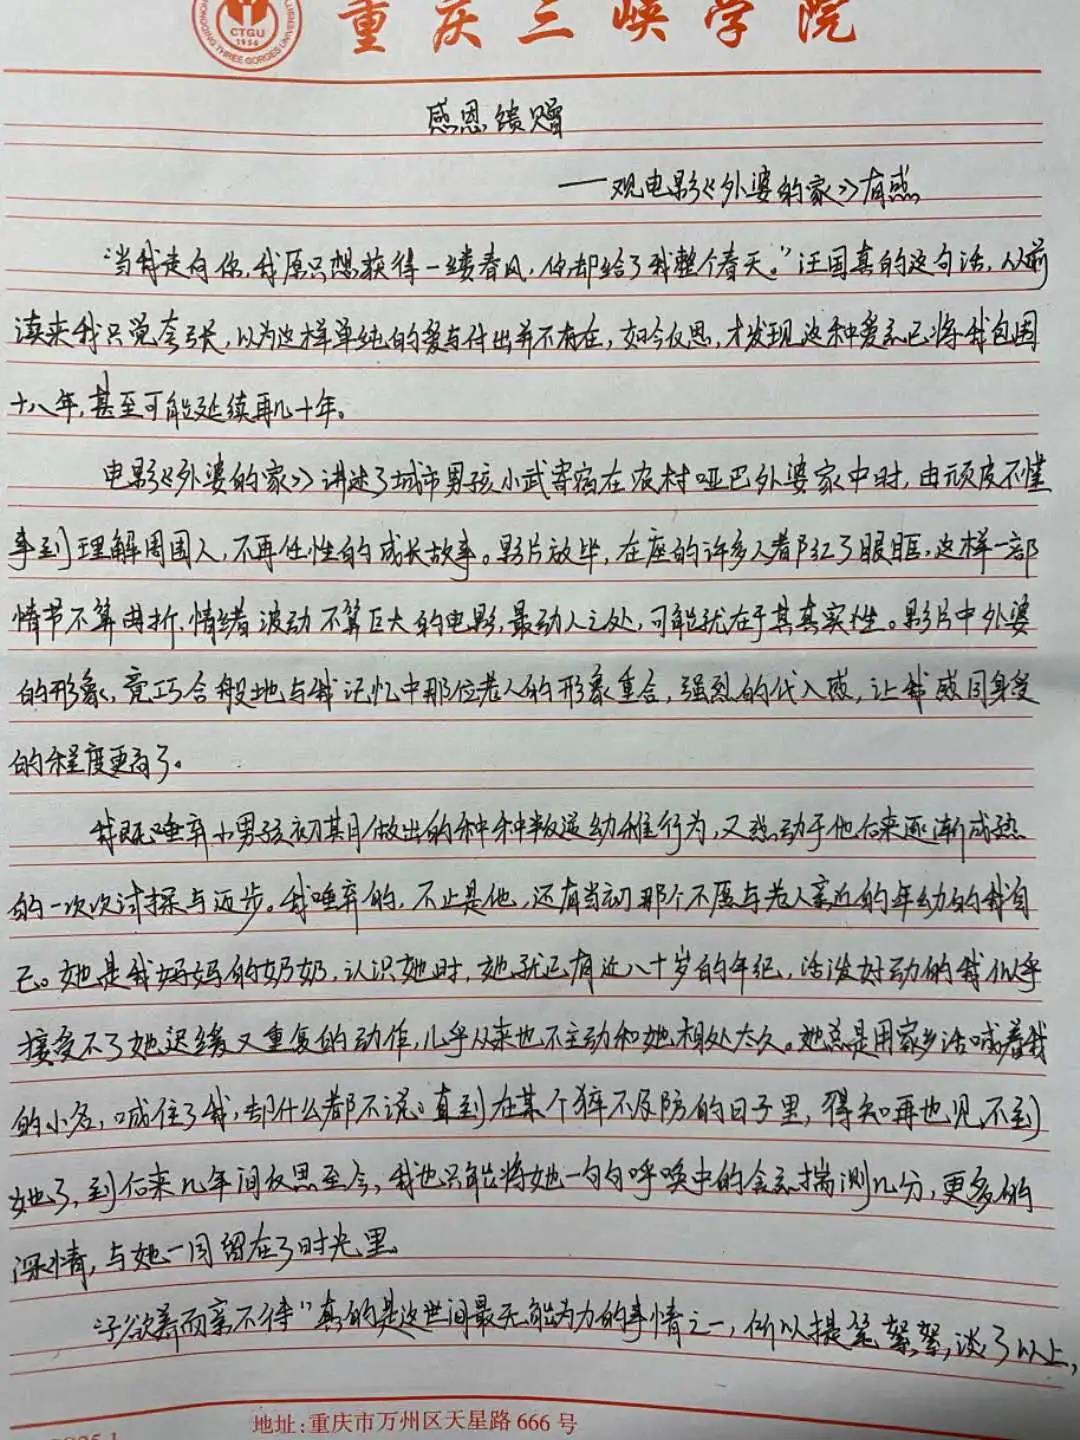 重庆三峡学院
CHONGQING THREE GORGES UNIVERSITY
CTGU
1956
感恩馈赠
——观电影《外婆的家》有感
“当我走向你,我原只想获得一缕春风,你却给了我整个春天。”汪国真的这句话,从前
读来我只觉夸张,以为这样单纯的爱与付出并不存在,如今反思,才发现这种爱意已将我包围
十八年,甚至可能延续再几十年。
电影《外婆的家》讲述了城市男孩小武寄宿在农村哑巴外婆家中时,由顽皮不懂
事到理解周围人,不再任性的成长故事。影片放毕,在座的许多人都红了眼眶,这样一部
情节不算曲折,情绪波动不算巨大的电影,最动人之处,可能就在于其真实性。影片中外婆
的形象,竟巧合般地与我记忆中那位老人的形象重合,强烈的代入感,让我感同身受
的程度更高了。
我既唾弃小男孩初期做出的种种叛逆幼稚行为,又感动于他后来逐渐成熟
的一次次试探与迈步。我唾弃的,不止是他,还有当初那个不愿与老人亲近的年幼的我自
己。她是我妈妈的奶奶,认识她时,她就已有近八十岁的年纪,活泼好动的我似乎
接受不了她迟缓又重复的动作,几乎从来也不主动和她相处太久。她总是用家乡话喊着我
的小名,喊住了我,却什么都不说。直到在某个猝不及防的日子里,得知再也见不到
她了,到后来几年间反思至今,我也只能将她一句句呼唤中的含意揣测几分,更多的
深情,与她一同留在了时光里。
“子欲养而亲不待”真的是这世间最无能为力的事情之一,所以提笔絮絮,谈了以上,
地址:重庆市万州区天星路 666 号